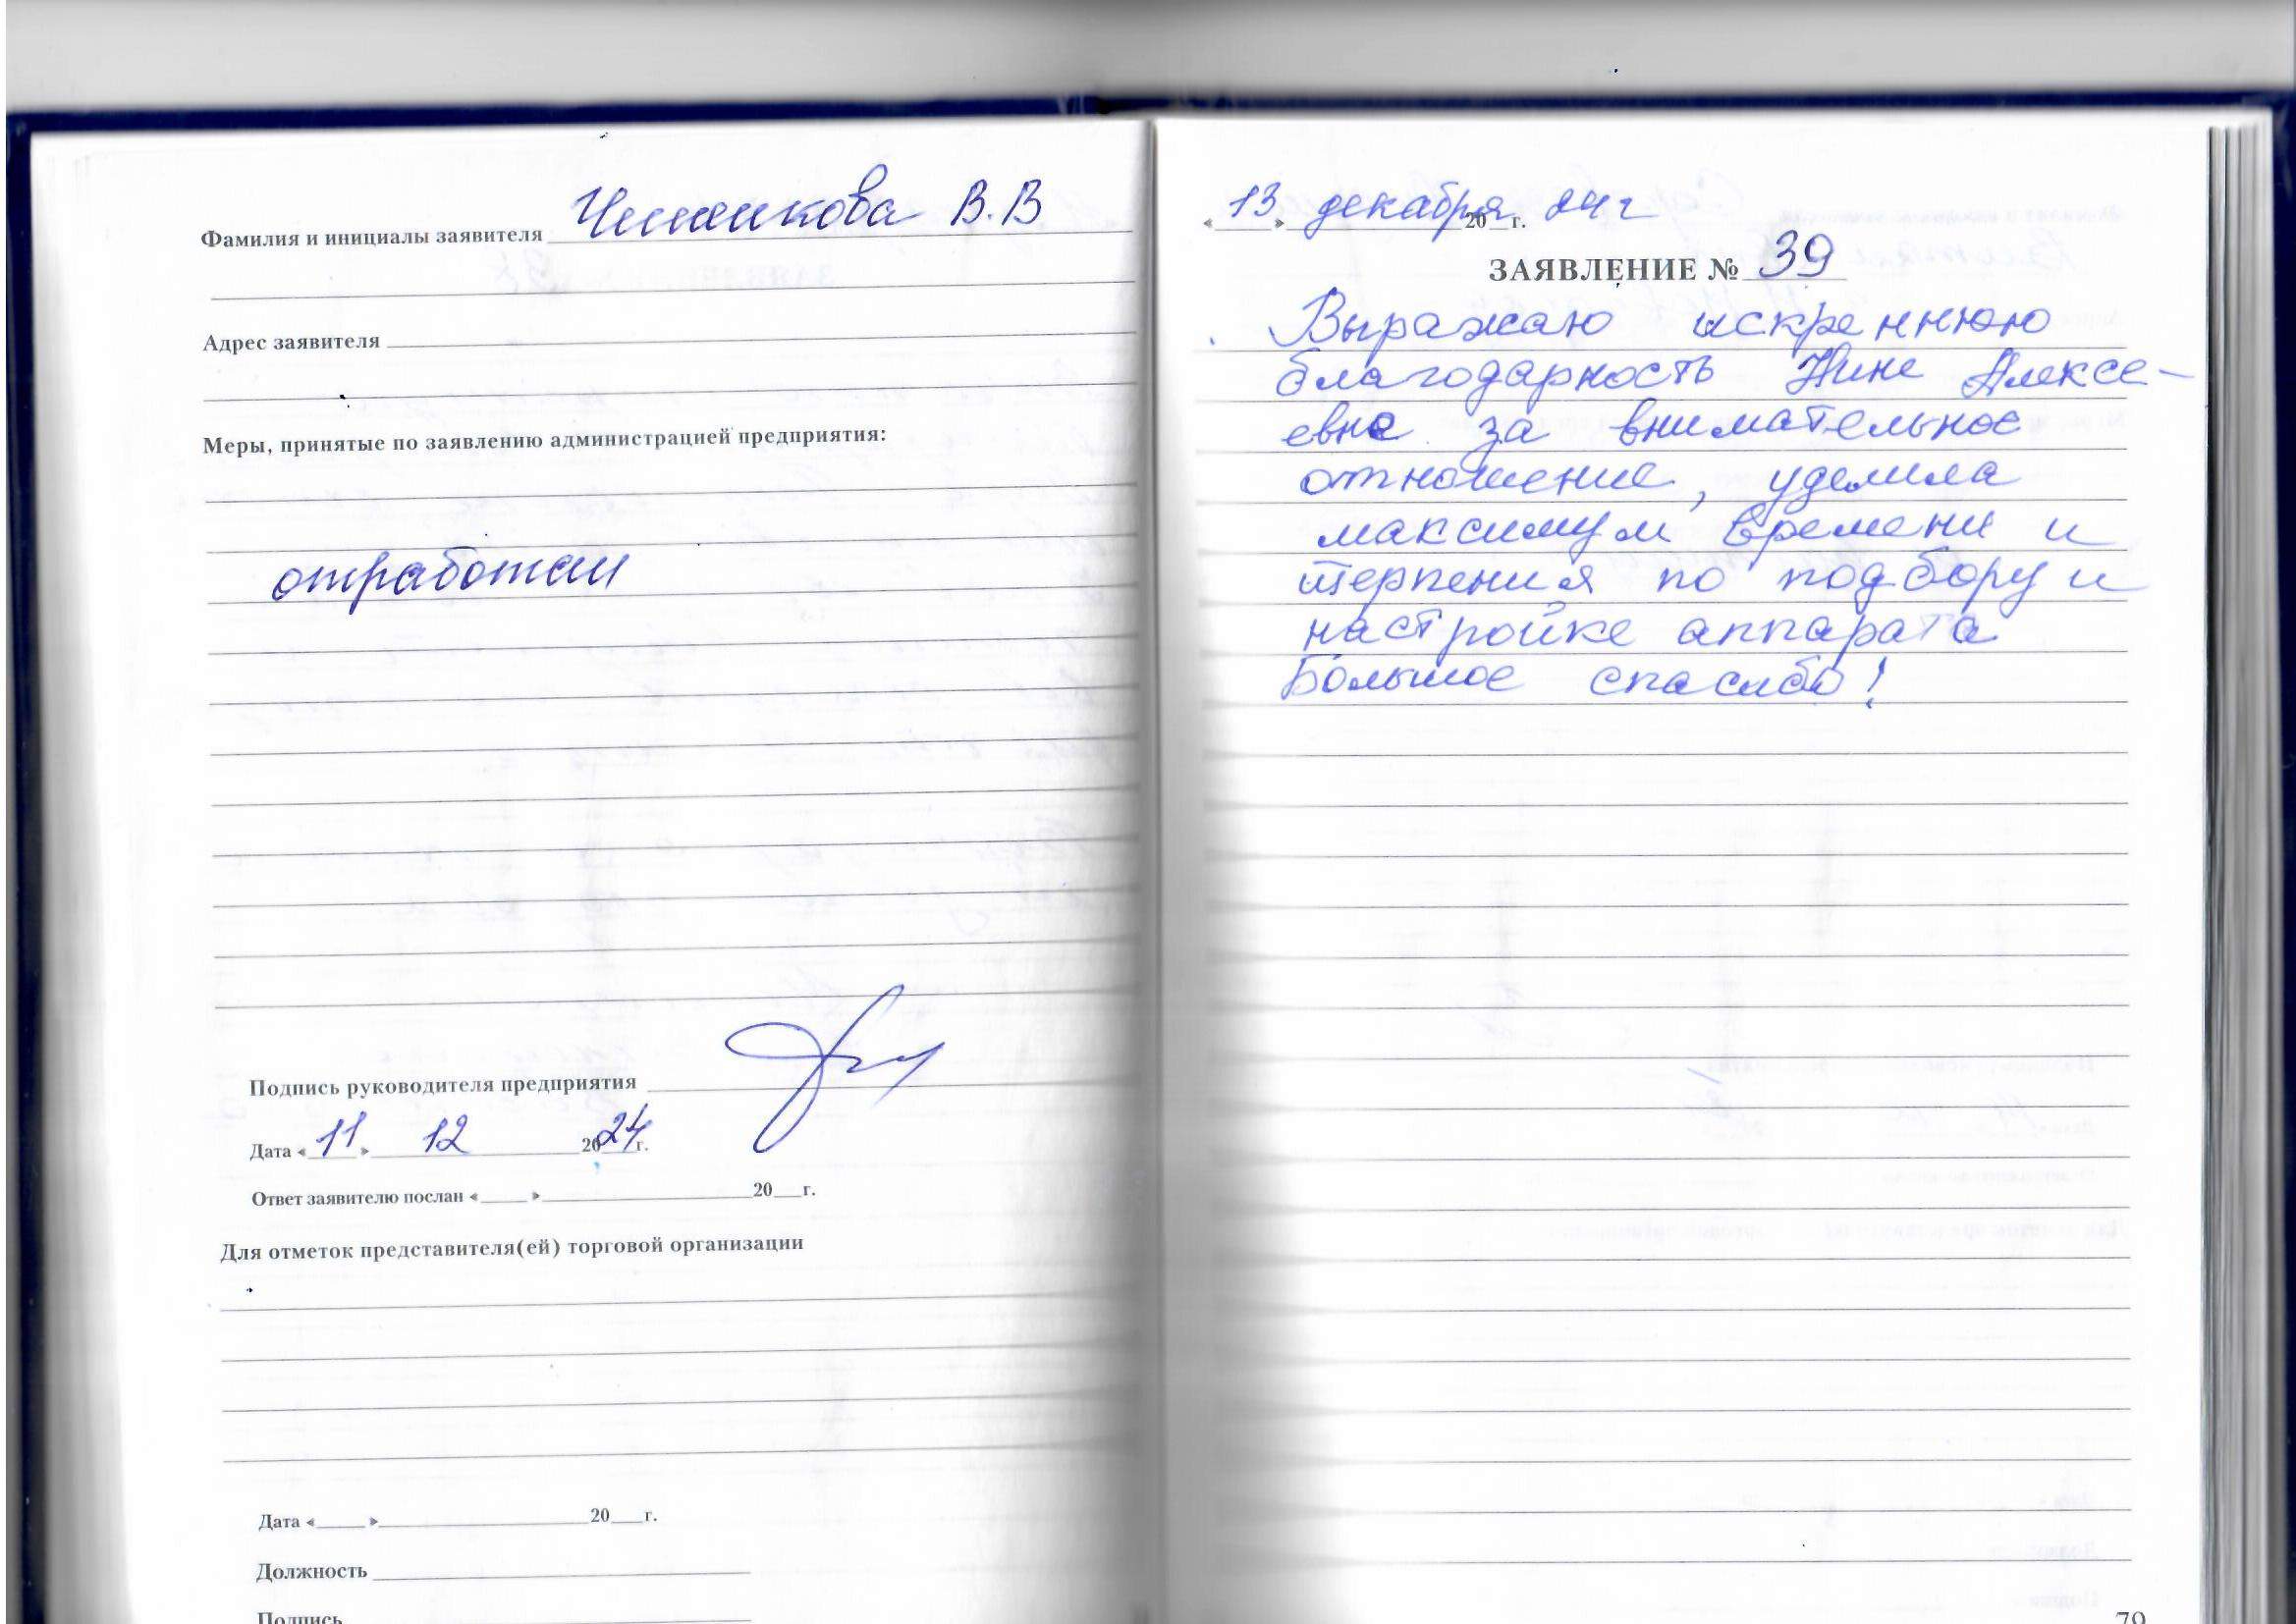 Фамилия и инициалы заявителя В.В
Адрес заявителя
Меры, принятые по заявлению администрацией предприятия:
отработан
Подпись руководителя предприятия
Дата «11» 12 2024г.
Ответ заявителю послан «____» ____ 20__г.
Для отметок представителя(ей) торговой организации
Дата «____» ____ 20__г.
Должность
Подпись
«13» декабря 20__г. 24 г
ЗАЯВЛЕНИЕ № 39
Выражаю искреннюю
благодарность Нине Алексе-
евне за внимательное
отношение, уделила
максимум времени и
терпения по подбору и
настройке аппарата
Большое спасибо!
79